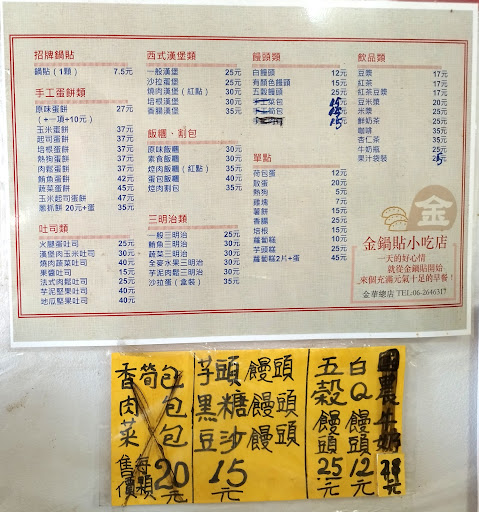 招牌鍋貼
鍋貼(1顆) 7.5元
手工蛋餅類
原味蛋餅 27元
(+一項+10元)
玉米蛋餅 37元
起司蛋餅 37元
培根蛋餅 37元
熱狗蛋餅 37元
肉鬆蛋餅 37元
鮪魚蛋餅 42元
蔬菜蛋餅 45元
玉米起司蛋餅 47元
脆抓餅 20元+蛋 35元
吐司類
火腿蛋吐司 25元
漢堡肉玉米吐司 30元
燒肉蔬菜吐司 40元
果醬吐司 15元
法式肉鬆吐司 25元
芋泥堅果吐司 40元
地瓜堅果吐司 40元
西式漢堡類
一般漢堡 25元
沙拉蛋堡 25元
燒肉漢堡(紅點) 30元
培根漢堡 30元
香腸漢堡 35元
飯糰、割包
原味飯糰 30元
素食飯糰 30元
焢肉飯糰(紅點) 35元
蛋包飯糰 40元
焢肉割包 35元
三明治類
一般三明治 25元
鮪魚三明治 30元
蔬菜三明治 30元
全麥水果三明治 30元
芋泥肉鬆三明治 30元
沙拉蛋(盒裝) 35元
饅頭類
白饅頭 12元
有顏色饅頭 15元
五穀饅頭 25元
單點
荷包蛋 12元
散蛋 20元
熱狗 5元
雞塊 7元
薯餅 15元
香腸 25元
培根 15元
蘿蔔糕 30元
芋頭糕 25元
蘿蔔糕2片+蛋 45元
飲品類
豆漿 17元
紅茶 17元
紅茶豆漿 17元
豆米漿 20元
米漿 25元
鮮奶茶 25元
咖啡 35元
杏仁茶 35元
牛奶瓶 25元
果汁袋裝
金
金鍋貼小吃店
一天的好心情
就從金鍋貼開始
來個充滿元氣十足的早餐!
金華總店 TEL:06-2646317
香筍包
肉 包
菜 包
售價每顆20元
芋頭饅頭
黑糖饅頭
豆沙饅頭
15元
五穀饅頭25元
白Q饅頭12元
國農牛奶28元